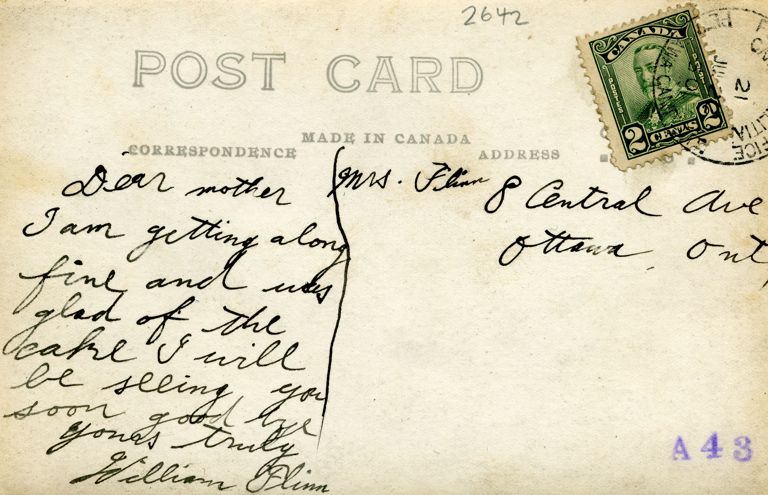 2642
POST CARD
MADE IN CANADA
CORRESPONDENCE
ADDRESS
CANADA
2 CENTS 2
21
Dear mother
I am getting along
fine and was
glad of the
cake I will
be seeing you
soon good bye
yours truly
William Flinn
Mrs. Flinn
8 Central Ave
Ottawa, Ont,
A43